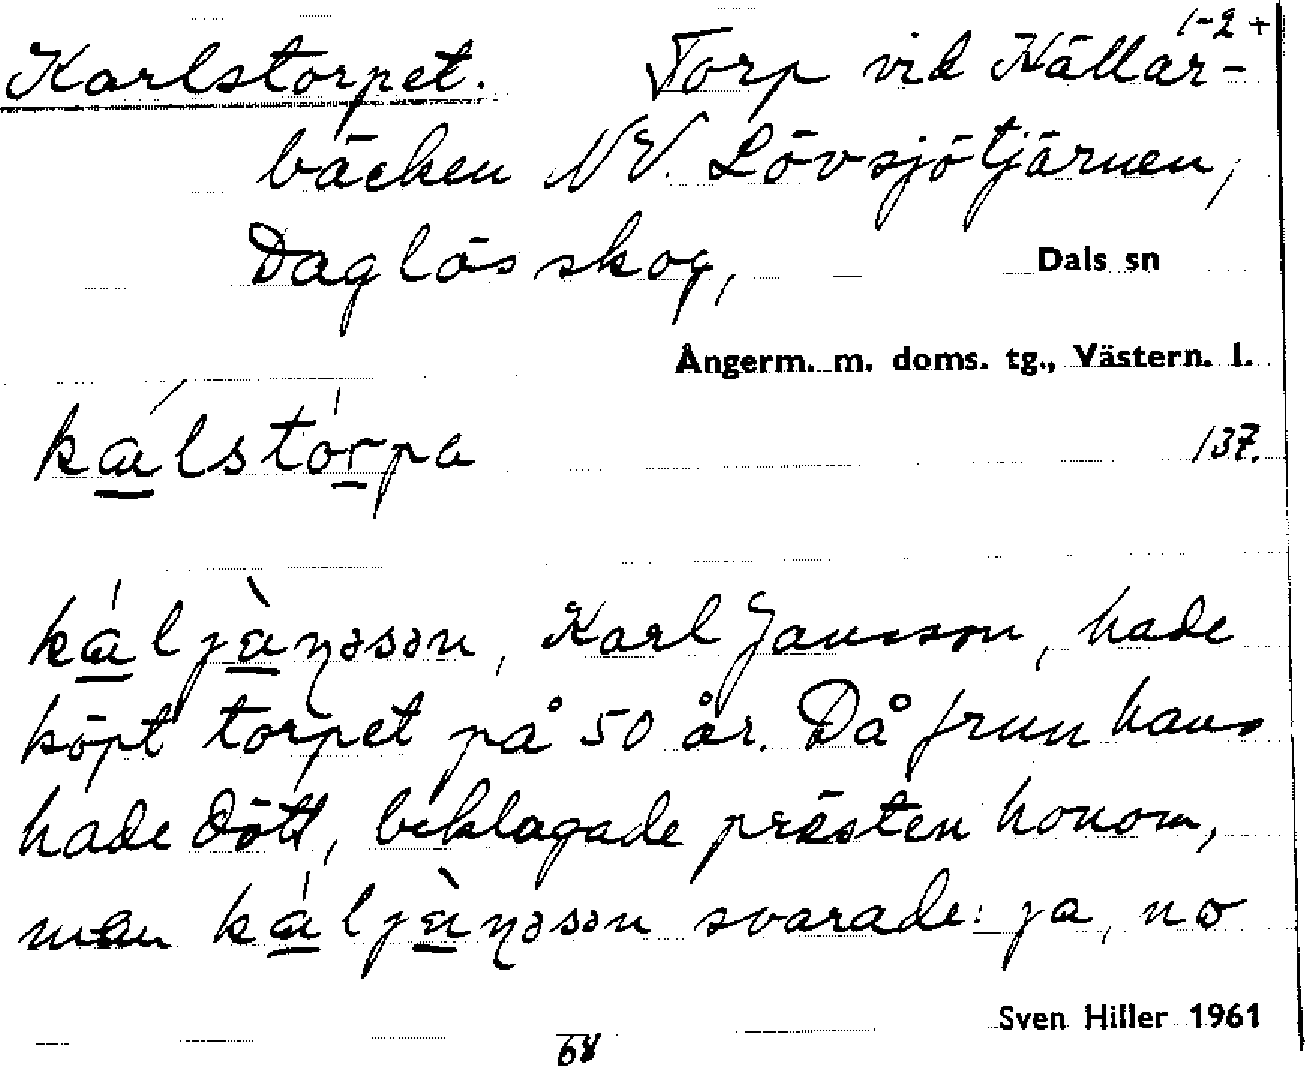 1-2+
Karlstorpet. Torp vid Källar-
bäcken NV. Lövsjötjärnen,
Daglösskog, Dals sn
Ångerm. m. doms. tg., Västern. l.
kálstórpa 137.
káljàŋəsən, Karl Jansson, hade
köpt torpet på 50 år. Då frun hans
hade dött, beklagade prästen honom,
men káljàŋəsən svarade: ja, no
Sven Hiller 1961
68